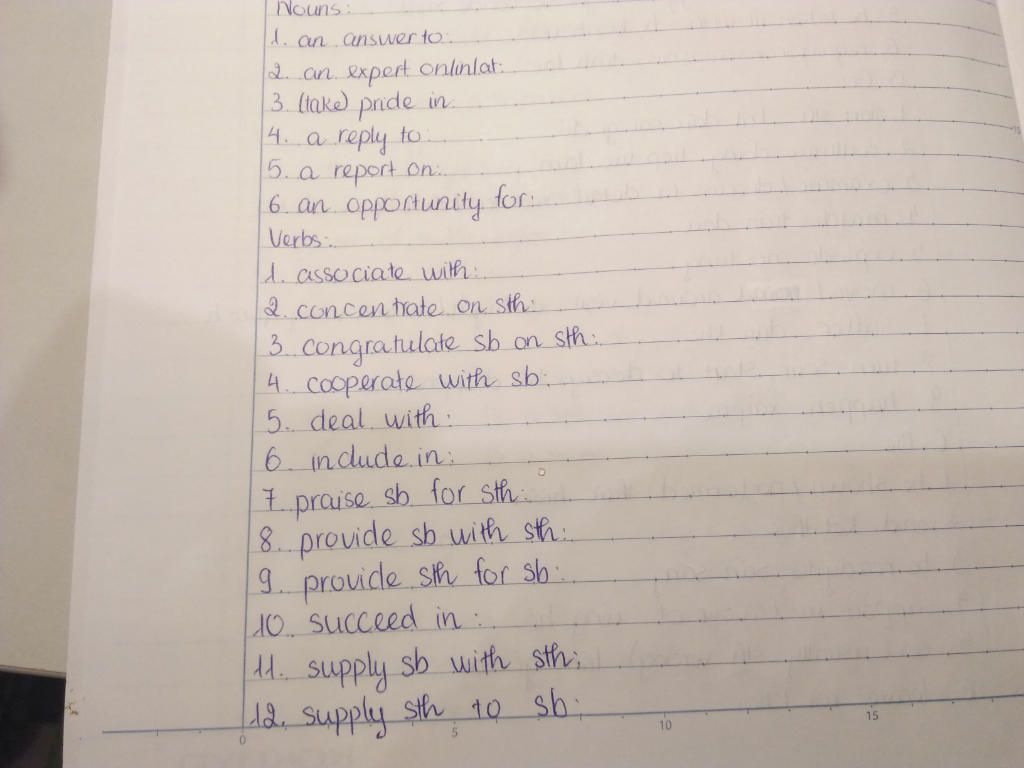 Nouns:
1. an answer to:
2. an expert on/in/at:
3. (take) pride in:
4. a reply to:
5. a report on:
6. an opportunity for:
Verbs:
1. associate with:
2. concentrate on sth:
3. congratulate sb on sth:
4. cooperate with sb:
5. deal with:
6. include in:
7. praise sb for sth:
8. provide sb with sth:
9. provide sth for sb:
10. succeed in:
11. supply sb with sth:
12. supply sth to sb:
0 5 10 15